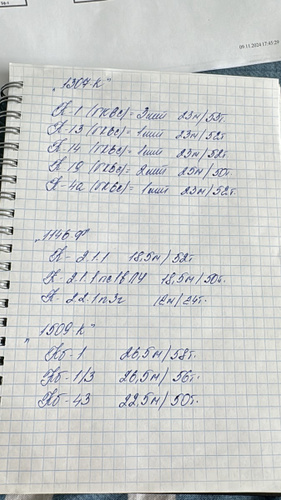 09.11.2024 17:45:29
"1307-К"
К-1 (ГКВС)= 3шт 23м/53т.
К-13 (ГКВС)= 1шт 23м/52т
К-14 (ГКВС)= 1шт 23м/52т
К-19 (ГКВС)= 2шт 25м/50т.
К-4а (ГКВС)= 1шт 23м/52т.
"1146-Ф"
К-2.1.1 18,5м/52т
К-2.1.1 18,5м/50т.
К-2.2.1 12м/24т.
"1509-К"
Кб-1 26.5м/58т.
Кб-1/3 26,5м/56т.
Кб-43 22.5м/50т.